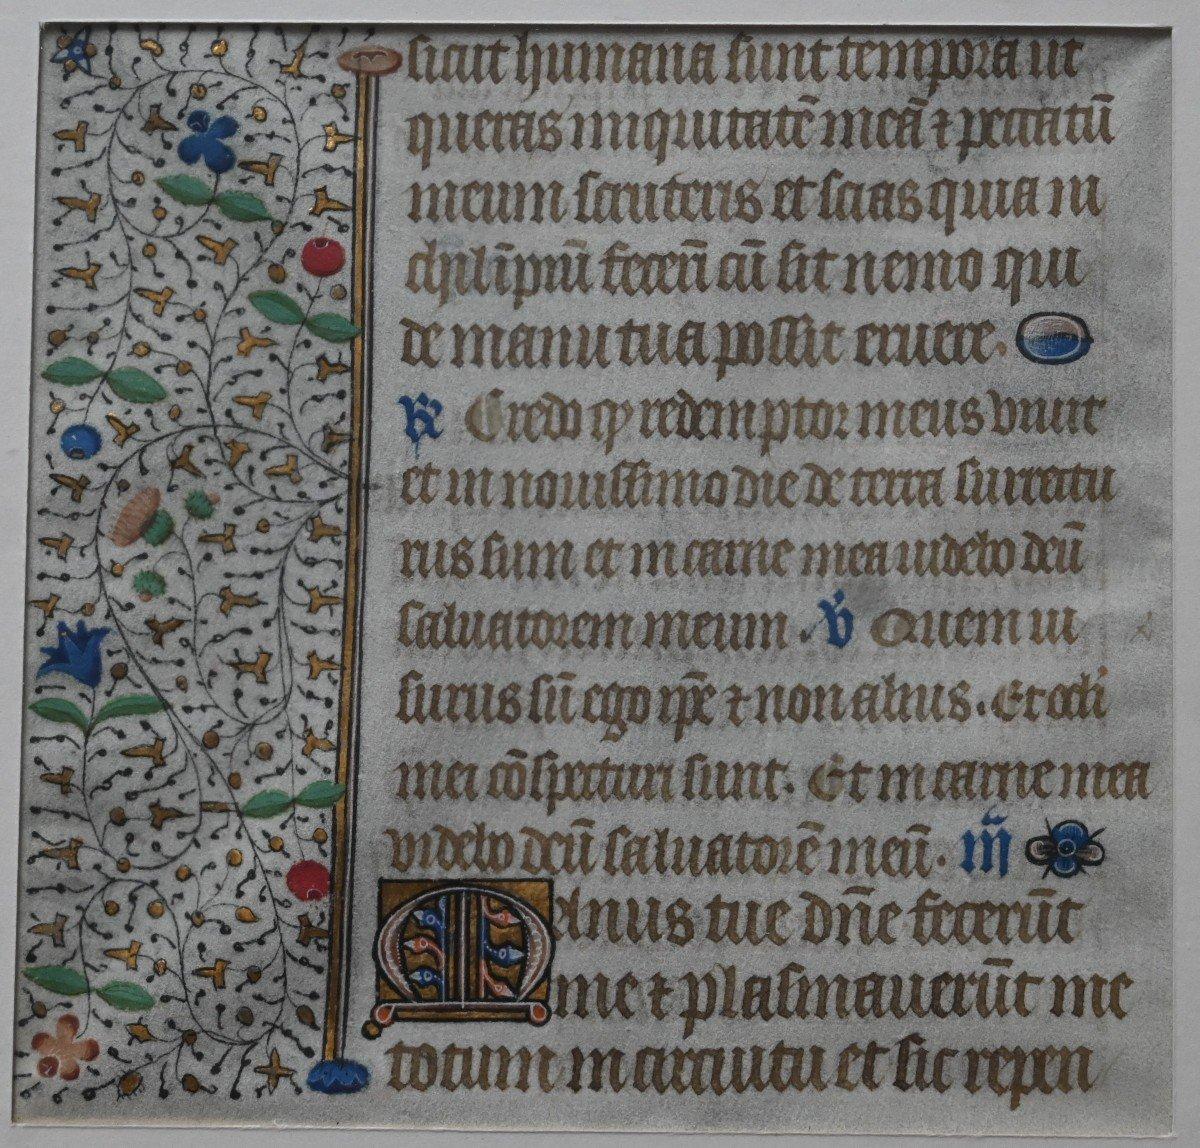 sicut humana sunt tempora ut
queras iniquitatē meā ⁊ peccatū
meum scruteris et scias quia ni
chil īpiū fecerī cū sit nemo qui
de manu tua possit eruere.
R Credo qꝫ redemptor meus viuit
et in nouissimo die de terra surrectu
rus sum et in carne mea uidebo deū
saluatorem meum. V Quem ui
surus sū ego ip̄e ⁊ non alius. Et oc̄li
mei cōspecturi sunt. Et in carne mea
videbo deū saluatorē meū.
Manus tue dn̄e fecerūt
me ⁊ plasmauerūt me
totum in circuitu et sic repen